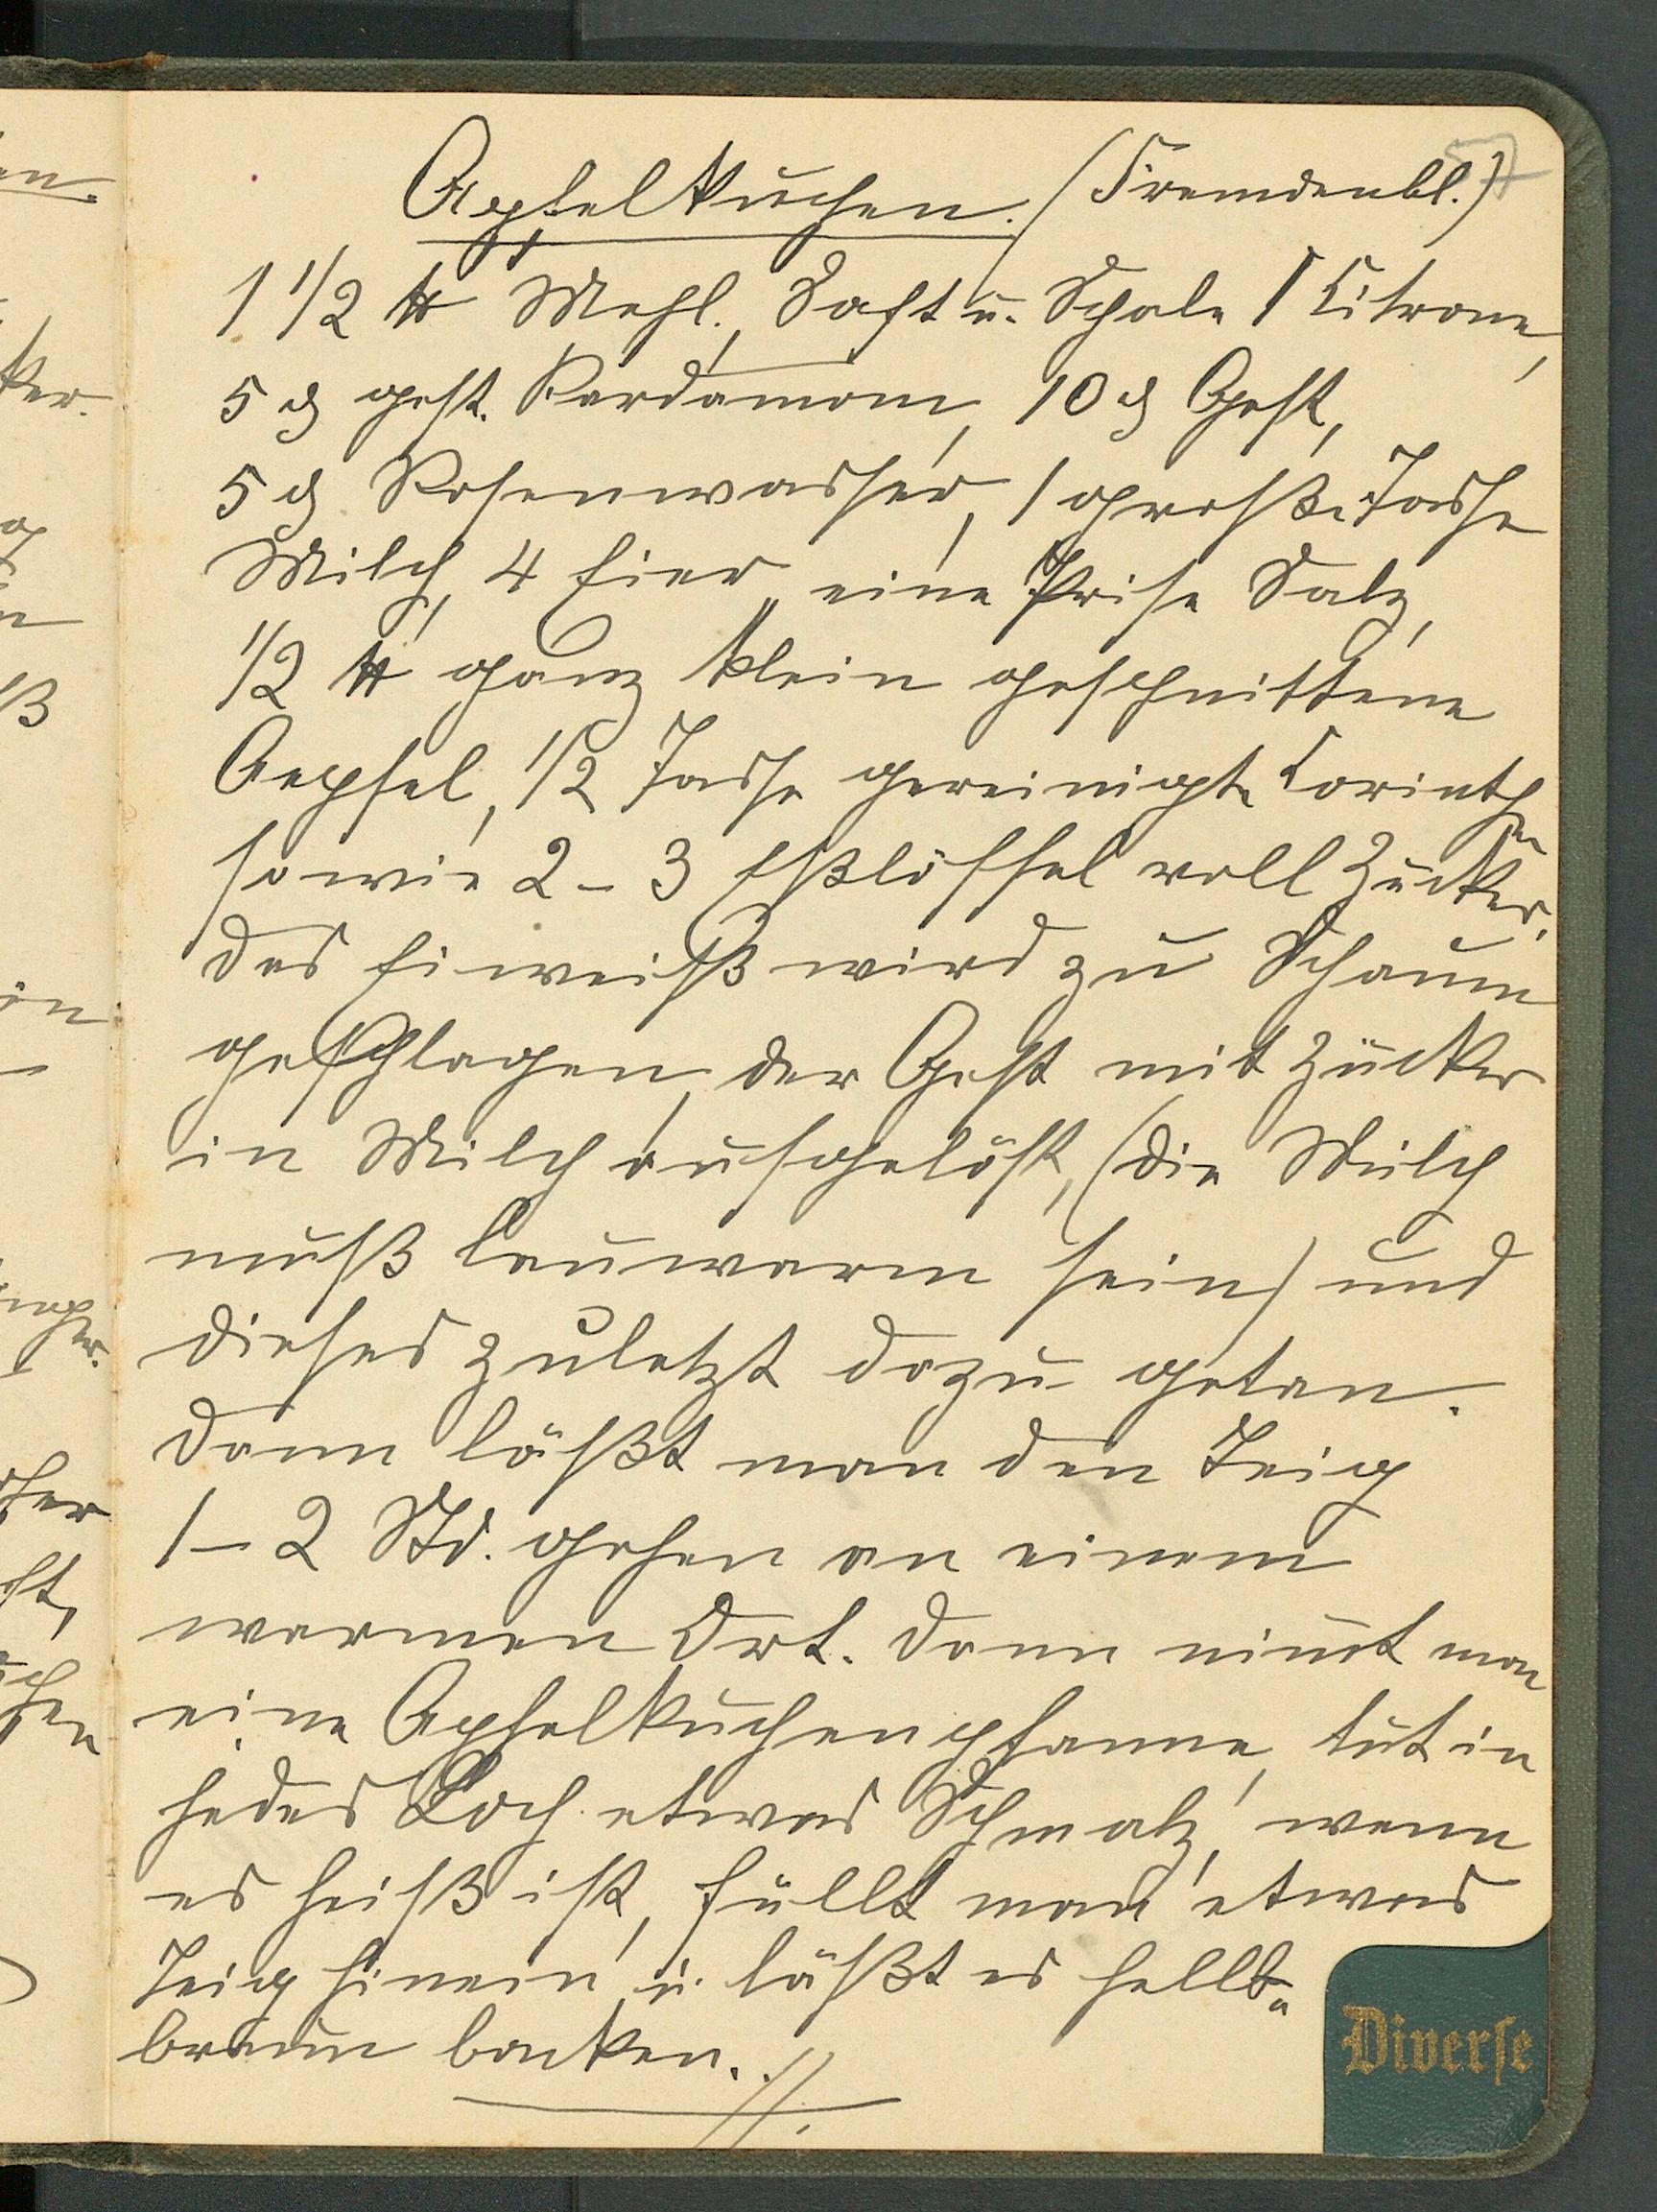 57
Apfelkuchen. (Fremdenbl.)
1 1/2 ℔ Mehl., Saft u. Schale 1 Citrone,
5 g gest. Kardamom, 10 g Gest,
5 g Rosenwasser, 1 große Tasse
Milch, 4 Eier, eine Prise Salz,
1/2 ℔ ganz klein geschnittene
Aepfel, 1/2 Tasse gereinigte Corinthen
sowie 2-3 Eßlöffel voll Zucker.
Das Eiweiß wird zu Schaum
geschlagen, der Gest mit Zucker
in Milch aufgelöst, (die Milch
muß lauwarm sein) und
dieses zuletzt dazu getan.
Dann läßt man den Teig
1-2 Std. gehen an einem
warmen Ort. Dann nim̅t man
eine Apfelkuchenpfanne, tut in
jedes Loch etwas Schmalz, wenn
es heiß ist, füllt man etwas
Teig hinein, u. läßt es hellb„
braun backen.
Diverse
ker.